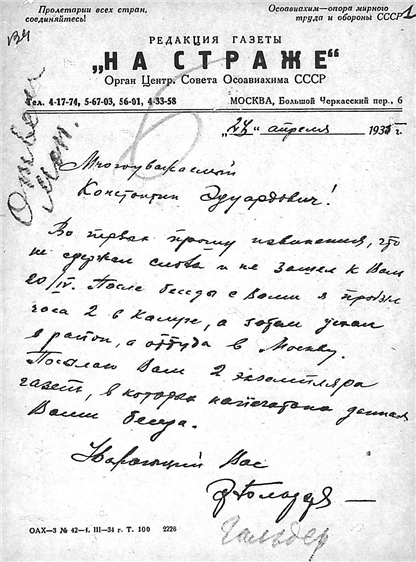 Пролетарии всех стран,
соединяйтесь!
Осоавиахим—опора мирного
труда и обороны СССР
1
РЕДАКЦИЯ ГАЗЕТЫ
„НА СТРАЖЕ“
Орган Центр. Совета Осоавиахима СССР
Тел. 4-17-74, 5-67-03, 56-01, 4-33-58
МОСКВА, Большой Черкасский пер., 6
„24“ апреля 1935 г.
Многоуважаемый
Константин Эдуардович!
Во первых прошу извинения, что
не сдержал слова и не зашел к Вам
20/IV. После беседы с Вами я пробыл
часа 2 в Калуге, а затем уехал
в район, а оттуда в Москву.
Посылаю Вам 2 экземпляра
газеты, в которых напечатана данная
Вами беседа.
Уважающий Вас
ОАХ—3 № 42—4. III—34 г. Т. 100 2226